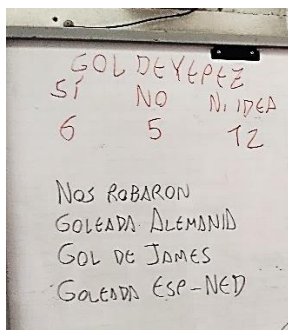 GOL DE YEPEZ
SÍ NO NI IDEA
6 5 12
NOS ROBARON
GOLEADA ALEMANIA
GOL DE JAMES
GOLEADA ESP-NED